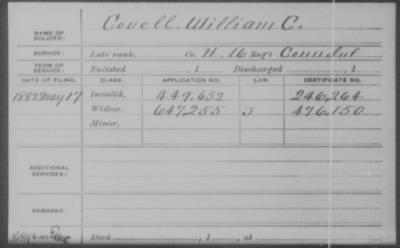 NAME OF SOLDIER: Covell. William C.
SERVICE: Late rank, Co. H, 16 Reg't Conn Inf
TERM OF SERVICE: Enlisted , 1 Discharged , 1
DATE OF FILING. CLASS. APPLICATION NO. LAW. CERTIFICATE NO.
1882 May 17 Invalid, 449.652 246,264
Widow, 647,255 J 476,150
Minor,
ADDITIONAL SERVICES:
REMARKS:
Died , 1 , at